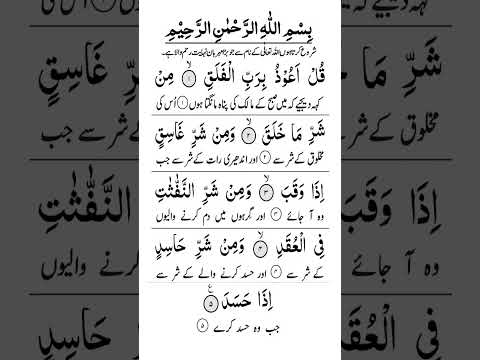 بِسْمِ اللّٰهِ الرَّحْمٰنِ الرَّحِيْمِ
شروع کرتا ہوں اللہ تعالیٰ کے نام سے جو بڑا مہربان نہایت رحم والا ہے۔
قُلْ اَعُوْذُ بِرَبِّ الْفَلَقِ ۙ﴿۱﴾ مِنْ
کہہ دیجیے کہ میں صبح کے مالک کی پناہ مانگتا ہوں ﴿۱﴾ اُس کی
شَرِّ مَا خَلَقَ ۙ﴿۲﴾ وَمِنْ شَرِّ غَاسِقٍ
مخلوق کے شر سے ﴿۲﴾ اور اندھیری رات کے شر سے جب
اِذَا وَقَبَ ۙ﴿۳﴾ وَمِنْ شَرِّ النَّفّٰثٰتِ
وہ آ جائے ﴿۳﴾ اور گرہوں میں دم کرنے والیوں
فِى الْعُقَدِ ۙ﴿۴﴾ وَمِنْ شَرِّ حَاسِدٍ
کے شر سے ﴿۴﴾ اور حسد کرنے والے کے شر سے
اِذَا حَسَدَ ﴿۵﴾
جب وہ حسد کرے ﴿۵﴾